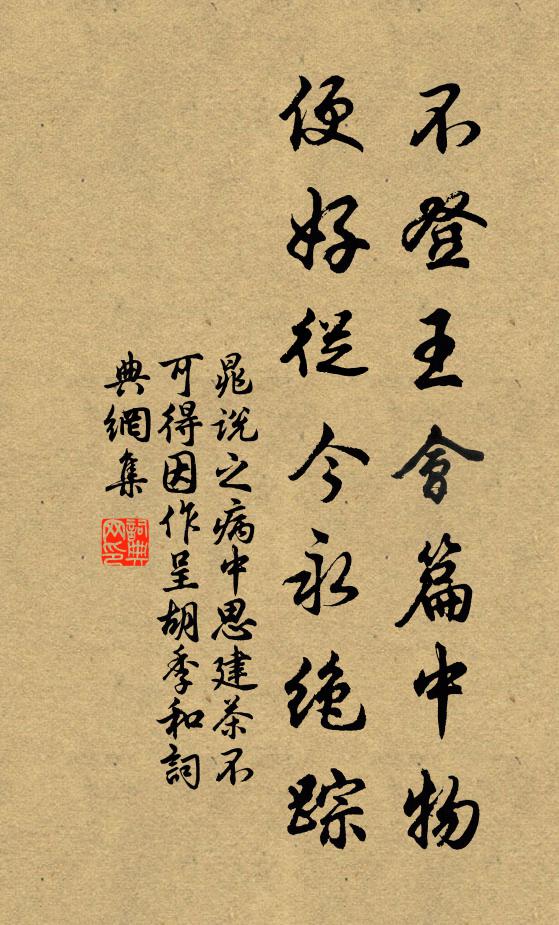 不登王會篇中物
便好從今永绝踪
晁说之病中思建茶不
可得因作呈胡季和詞
典網集
詞典
网印